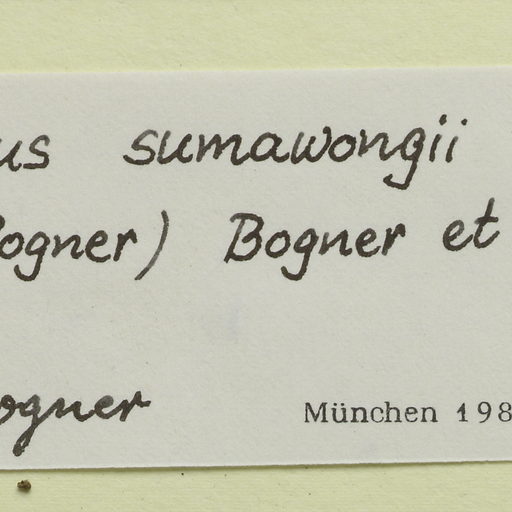 us sumawongii
ogner) Bogner et
ogner München 198